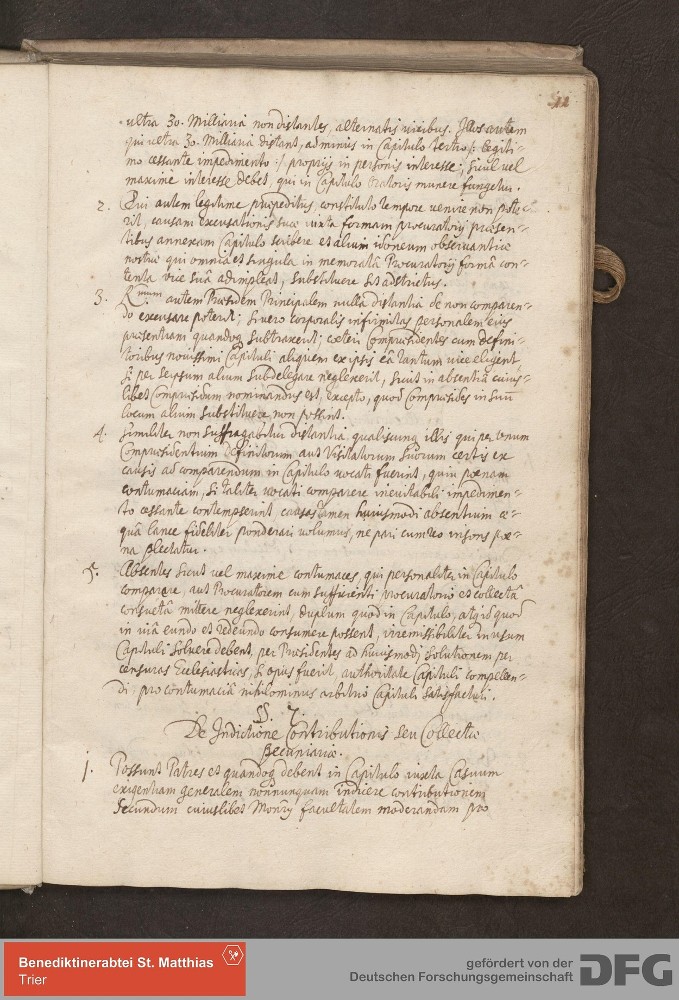 12
ultra 30. Milliaria non distantes, alternatis vicibus. Illos autem
qui ultra 30. Milliaria distant, ad minus in Capitulo tertio /: legiti-
mo cessante impedimento :/ proprijs in personis interesse, sicut vel
maxime interesse debet, qui in Capitulo Oratoris munere fungetur.
2. Qui autem legitime præpeditus constituto tempore venire non pote-
rit, causam excusationis suæ iuxta formam procuratorij præsen-
tibus annexam Capitulo scribere et alium idoneum observantiæ
nostræ qui omnia et singula in memorata Procuratorij forma con-
tenta vice suâ adimpleat, substituere sit adstrictus.
3. Rmum autem Præsidem Principalem nulla distantia de non comparen-
do excusare poterit; si vero corporalis infirmitas personalem eius
præsentiam quandoq subtraxerit; cæteri Compræsidentes cum defini-
toribus novissimi Capituli aliquem ex ipsis eâ tantum vice eligent,
si per seipsum alium subdelegare neglexerit, sicut in absentia cuius-
libet Compræsidum nominandus est, excepto, quod Compræsides in suu
locum alium substituere non possint.
4. Similiter non suffragabitur distantia qualiscunq illis qui per unum
Compræsidentium Definitorum aut Visitatorum suorum certis ex
causis ad comparendum in Capitulo vocati fuerint, quin pœnam
contumaciam, si taliter vocati comparere inevitabili impedimen-
to cessante contempserint causas tamen huiusmodi absentium æ-
quâ lance fideliter ponderari volumus, ne pari cum reo insons pœ-
na plectatur.
5. Absentes sicut vel maxime contumaces, qui personaliter in Capitulo
comparere, aut Procuratorem cum sufficienti procuratorio et collectâ
consuetâ mittere neglexerint, duplum quod in Capitulo, atq quod
in viâ eundo et redeundo consumere possent, irremissibiliter in usum
Capituli solvere debent, per Præsidentes ad huiusmodi solutionem per
censuras Ecclesiasticas, si opus fuerit, authoritate Capituli compellen-
di, pro contumaciâ nihilominus arbitrio Capituli satisfacturi.
§. 7.
De Indictione Contributionis seu Collectæ
Pecuniariæ.
1. Possunt Patres et quandoq debent in Capitulo iuxta casuum
exigentiam generalem nonnunquam indicere contributionem
secundum cuiuslibet Monrij facultatem moderandam pro
Benediktinerabtei St. Matthias
Trier
gefördert von der
Deutschen Forschungsgemeinschaft
DFG